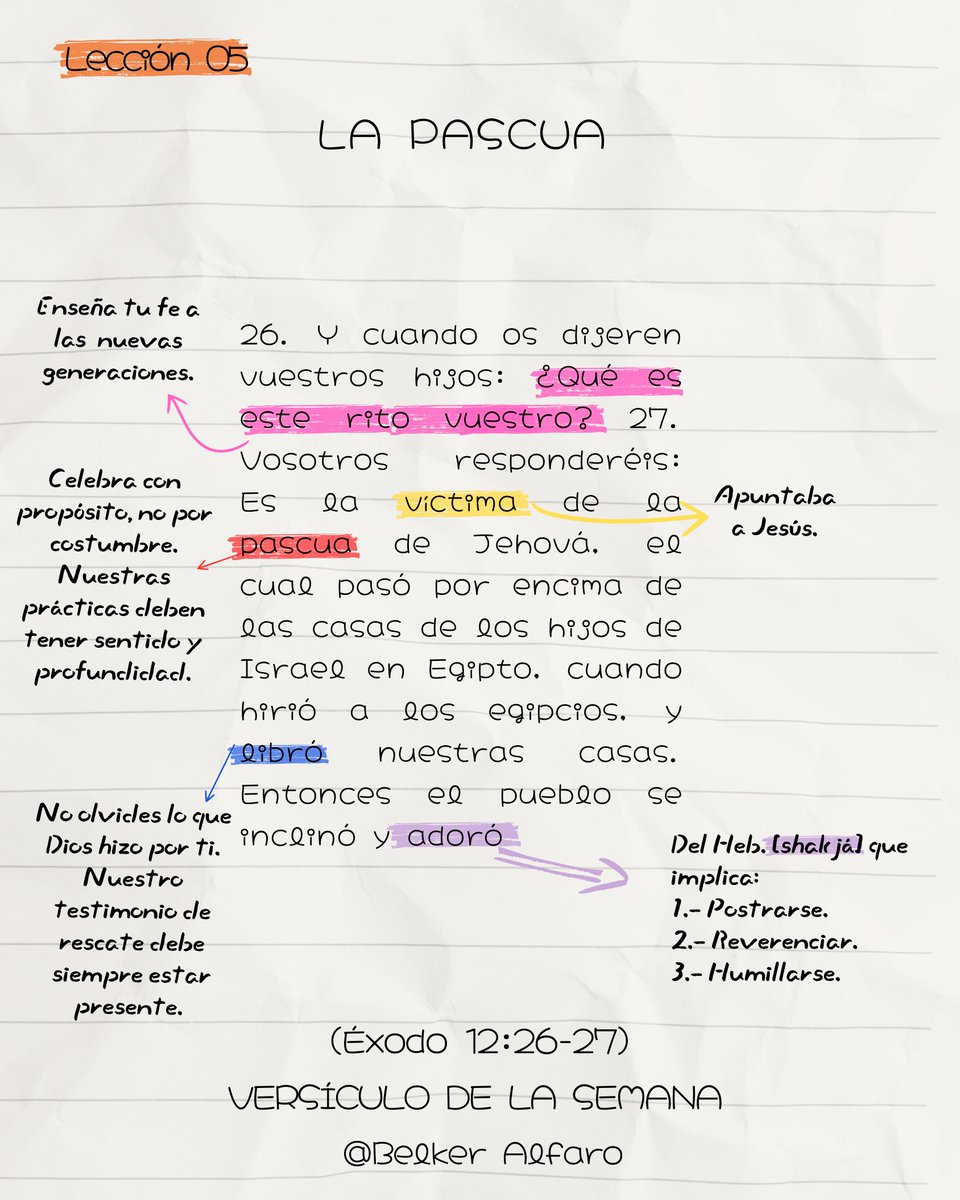 Lección 05
LA PASCUA
Enseña tu fe a
las nuevas
generaciones.
Celebra con
propósito, no por
costumbre.
Nuestras
prácticas deben
tener sentido y
profundidad.
No olvides lo que
Dios hizo por ti.
Nuestro
testimonio de
rescate debe
siempre estar
presente.
26. Y cuando os dijeren
vuestros hijos: ¿Qué es
este rito vuestro? 27.
Vosotros responderéis:
Es la víctima de la
pascua de Jehová, el
cual pasó por encima de
las casas de los hijos de
Israel en Egipto, cuando
hirió a los egipcios, y
libró nuestras casas.
Entonces el pueblo se
inclinó y adoró
Apuntaba
a Jesús.
Del Heb. [shak já] que
implica:
1.- Postrarse.
2.- Reverenciar.
3.- Humillarse.
(Éxodo 12:26-27)
VERSÍCULO DE LA SEMANA
@Belker Alfaro